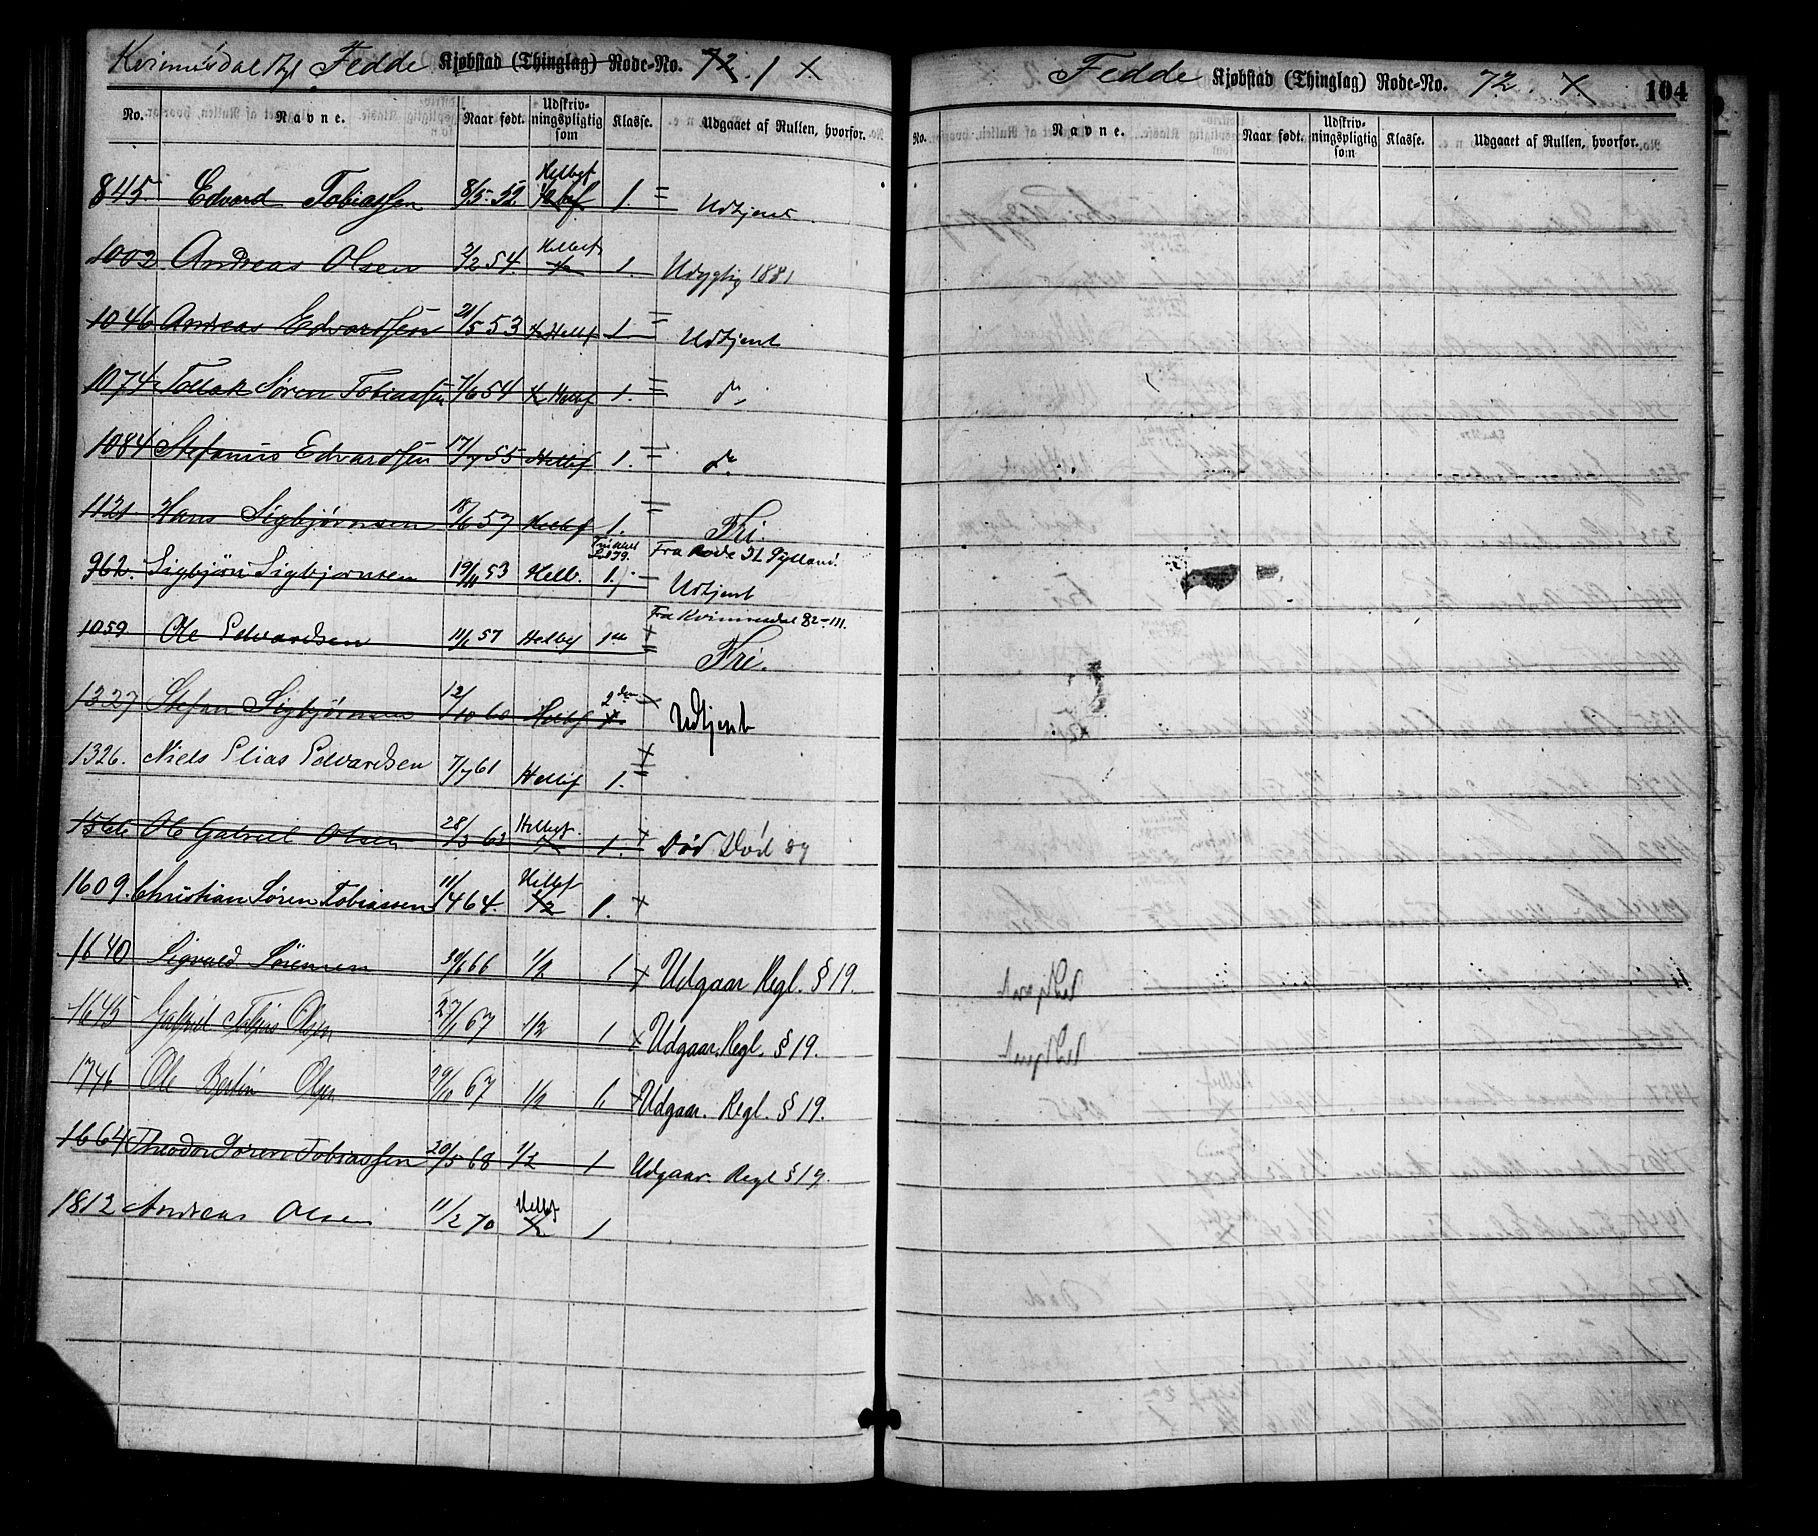 Fedde Kjøbstad (Thinglag) Rode-No. 72. 1 X
No. Navne. Naar født. Udskrivningspligtig som Klasse. Udgaaet af Rullen, hvorfor.
845. Edvard Tobiassen 8/5 52 Helbef 1. = Udtjent
1002 Andreas Olsen 2/2 54. Helbef 1. Udygtig 1881
1046 Andreas Edvardsen 21/5 53 Helbf 1 = Udtjent
1074 Tollak Søren Tobiassen 7/6 54 Helbf 1. = do
1084 Stefanus Edvardsen 17/7 55 Helbf 1. = do
1121 Hans Sigbjørnsen 18/6 57 Helbf 1. = Fri.
Fra Rode 31 Fylland.
962. Sigbjørn Sigbjørnsen 19/11 53 Helb. 1. Udtjent
Fra Kvinnesdal 82-111.
1059. Ole Edvardsen 11/1 57 Helbf 1ste = Fri.
1327 Stefan Sigbjørnsen 12/10 60 Helbf 2den X Udtjent
1326. Niels Elias Edvardsen 7/7 61 Helbf 1. =
1566 Ole Gabriel Olsen 28/3 63 Helbef. 1. + Død Død 87
1609. Christian Søren Tobiassen 11/4 64. Helbf 1/2 1. +
1640 Sigvald Sørensen 30/6 66 1/2 1 + Udgaar Regl. § 19.
1645 Gabriel Tobias Olsen 27/1 67 1/2 1 X Udgaar. Regl. § 19.
1746 Ole Bertin Olsen 29/10 67 1/2 1 + Udgaar. Regl. § 19.
1664 Theodor Søren Tobiassen 20/5 68 1/2 1 Udgaar. Regl § 19.
1812 Andreas Olsen 11/2 70 Helbf 1/2 1
Fedde Kjøbstad (Thinglag) Rode-No. 72. X 104
No. Navne. Naar født. Udskrivningspligtig som Klasse. Udgaaet af Rullen, hvorfor.